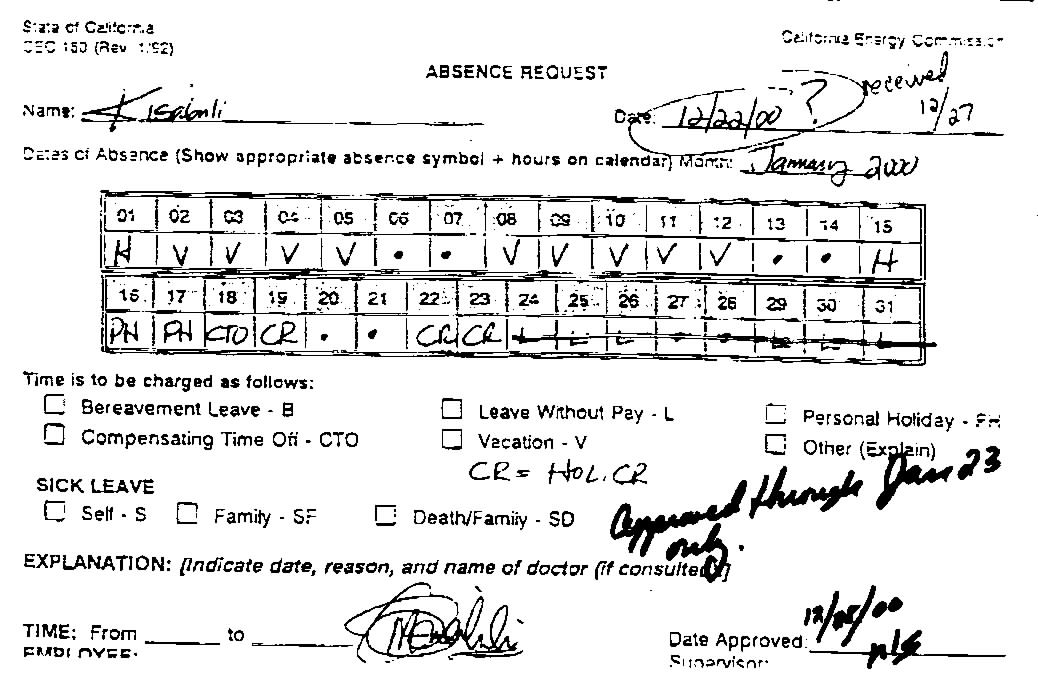 State of California
CEC 150 (Rev. 1/92)
California Energy Commission
ABSENCE REQUEST
received
Name: Kisabuli Date: 12/22/00 ? 12/27
Dates of Absence (Show appropriate absence symbol + hours on calendar) Month: January 2000
01 02 03 04 05 06 07 08 09 10 11 12 13 14 15
H V V V V • • V V V V V • • H
16 17 18 19 20 21 22 23 24 25 26 27 28 29 30 31
PH PH CTO CR • • CR CR L L L • • L L L
Time is to be charged as follows:
Bereavement Leave - B Leave Without Pay - L Personal Holiday - PH
Compensating Time Off - CTO Vacation - V Other (Explain)
CR = HOL. CR
SICK LEAVE
Self - S Family - SF Death/Family - SD
Approved through Jan 23
only.
EXPLANATION: [Indicate date, reason, and name of doctor (if consulted)]
TIME: From to
Date Approved: 12/28/00
EMPLOYEE:
Supervisor: